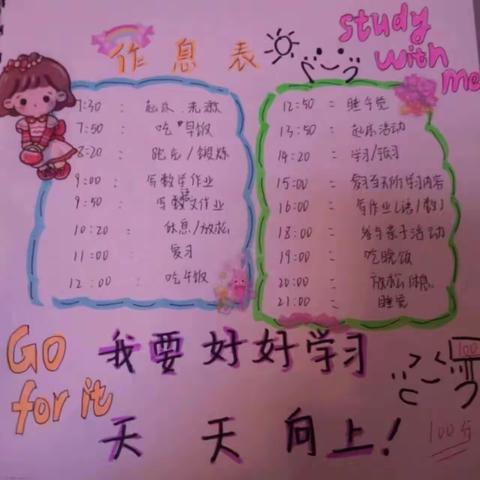 作息表
study
with
me
7:30 : 起床、洗漱
7:50 : 吃早饭
8:20 : 跑步/锻炼
9:00 : 写数学作业
9:50 : 写语文作业
10:20 : 休息/放松
11:00 : 复习
12:00 : 吃午饭
12:50 : 睡午觉
13:50 : 起床活动
14:20 : 学习/预习
15:00 : 复习当天所学习内容
16:00 : 写作业(语/数)
18:00 : 参与亲子活动
19:00 : 吃晚饭
20:00 : 放松休息
21:00 : 睡觉
Go
for it
我要好好学习
天天向上!
100
100分